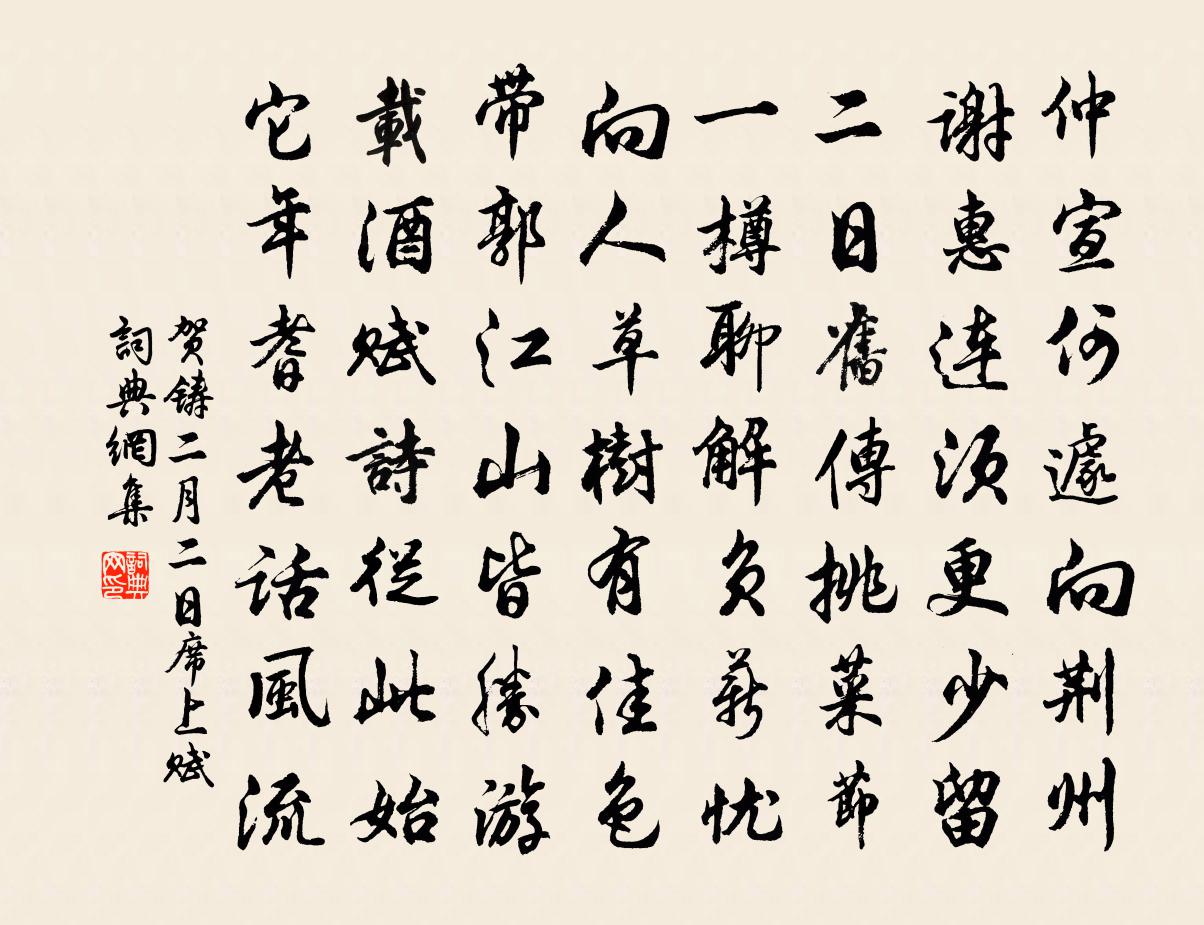 仲宣何遽向荆州
謝惠連須更少留
二日舊傳挑菜節
一樽聊解負薪忧
向人草樹有佳色
带郭江山皆勝游
載酒赋詩從此始
它年耆老話風流
贺鑄二月二日席上赋
詞典網集
詞典
网印